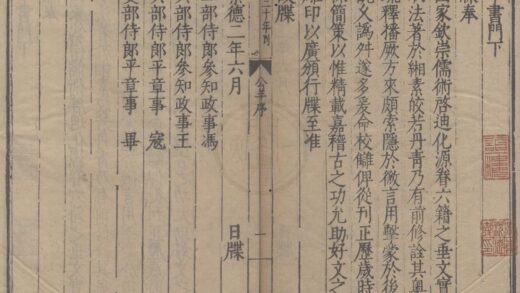 書門下
奉
家欽崇儒術啓迪化源眷六籍之垂文實
法著於緗素皎若丹青乃有前修詮其奧
疏釋播厥方來頗索隱於微言用擊蒙於後
久譌舛遂多爰命校讎俾從刊正歷歲時
簡策以惟精載嘉稽古之功允助好文之
雕印以廣頒行牒至准
牒
十年刊
公羊序
一
德二年六月 日牒
部侍郎參知政事馮
部侍郎參知政事王
部侍郎平章事 寇
部侍郎平章事 畢